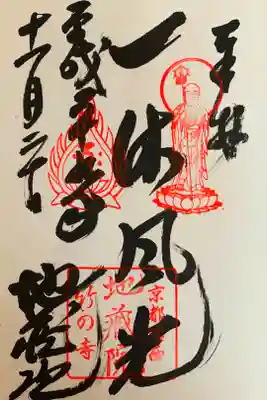 奉拝
一休風光
平成
十一月二十日
地蔵院
京都
地蔵院
竹の寺